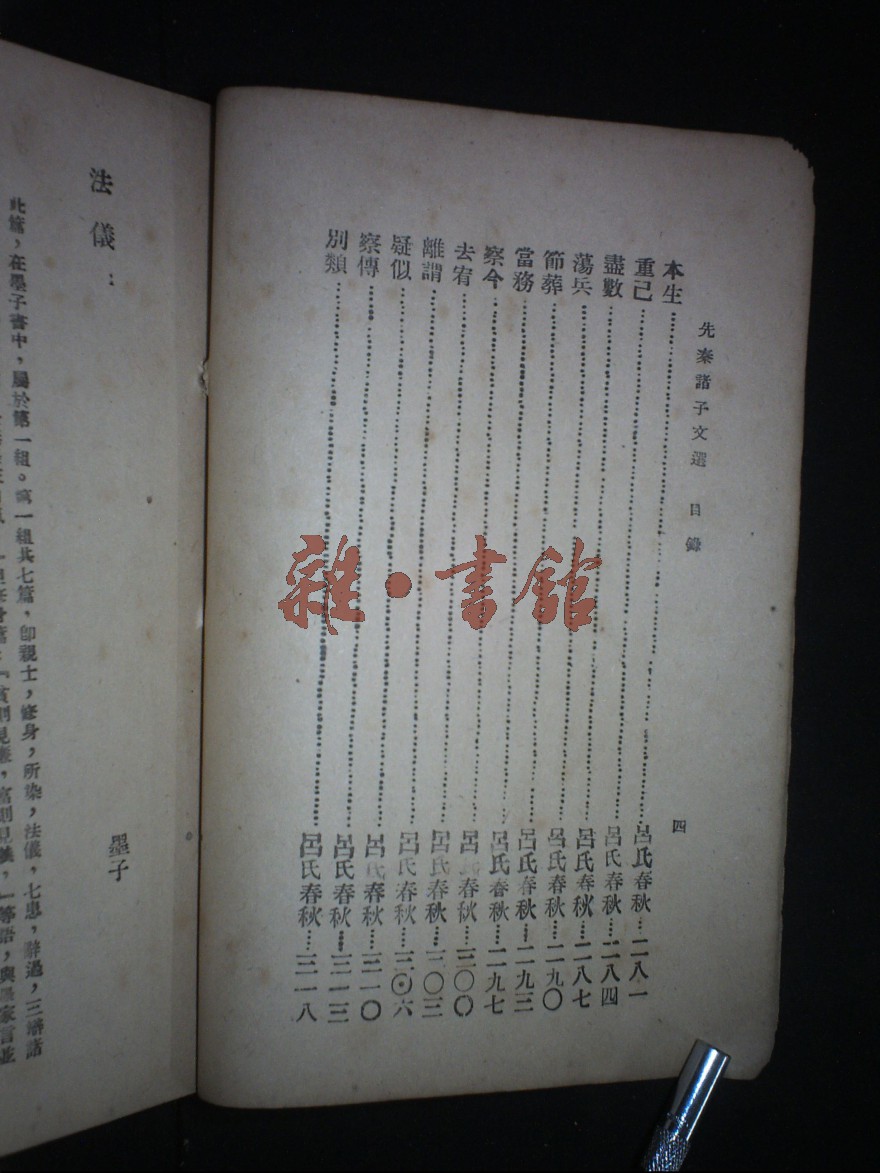 先秦諸子文選 目錄
四
本生……呂氏春秋…二八一
重己……呂氏春秋…二八四
盡數……呂氏春秋…二八七
蕩兵……呂氏春秋…二九〇
節葬……呂氏春秋…二九三
當務……呂氏春秋…二九七
察今……呂氏春秋…三〇〇
去宥……呂氏春秋…三〇三
離謂……呂氏春秋…三〇六
疑似……呂氏春秋…三一〇
察傳……呂氏春秋…三一三
別類……呂氏春秋…三一八
法儀： 墨子
此篇，在墨子書中，屬於第一組。第一組共七篇，卽親士，修身，所染，法儀，七患，辭過，三辯諸
『貧則見廉，富則見義，』等語，與墨家言並
雜·書館